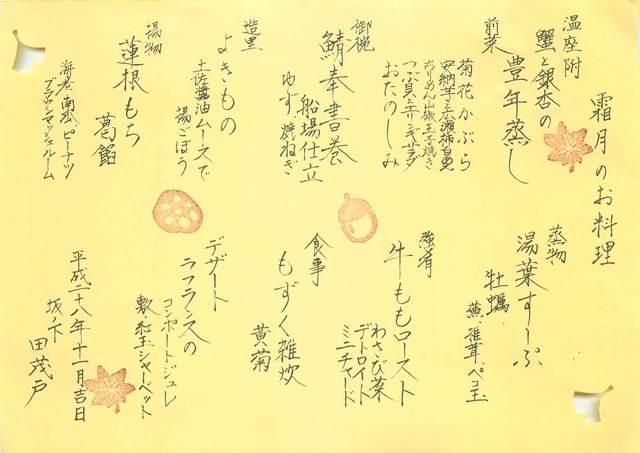 霜月のお料理
温座附
蟹と銀杏の
豊年蒸し
前菜
菊花かぶら
安納芋と広瀬柿白和
ちりめん山椒玉子焼き
つぶ貝とエリンギサラダ
おたのしみ
御椀
鯖奉書巻
船場仕立
ゆず 焼ねぎ
造里
よきもの
土佐醤油ムースで
揚ごぼう
揚物
蓮根もち
葛餡
海老 南瓜 ピーナツ
ブラウンマッシュルーム
蒸物
湯葉すーぷ
牡蠣
蕪 椎茸 ペコ玉
強肴
牛ももロースト
わさび菜
デトロイト
ミニチャード
食事
もずく雑炊
黄菊
デザート
ラフランスの
コンポートジュレ
敷 紅玉シャーベット
平成二十八年十一月吉日
坂ノ下
田茂戸